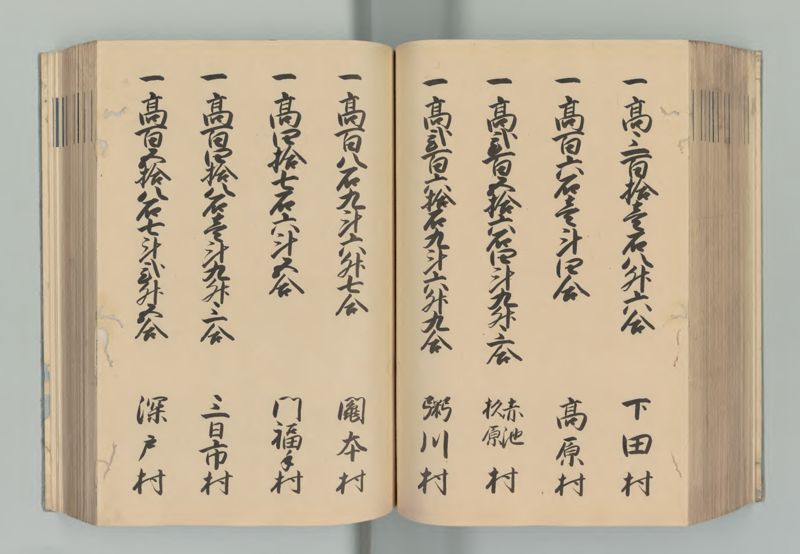 一高三百拾壱石八升六合 下田村
一高百六石壱斗四合 高原村
一高弐百五拾六石四斗九升六合 赤池 杉原 村
一高弐百六拾石九斗六升九合 粥川村
一高百八石九斗六升七合 関本村
一高四拾七石六斗五合 門福手村
一高百四拾八石壱斗九升三合 三日市村
一高百五拾八石七斗弐升五合 深戸村